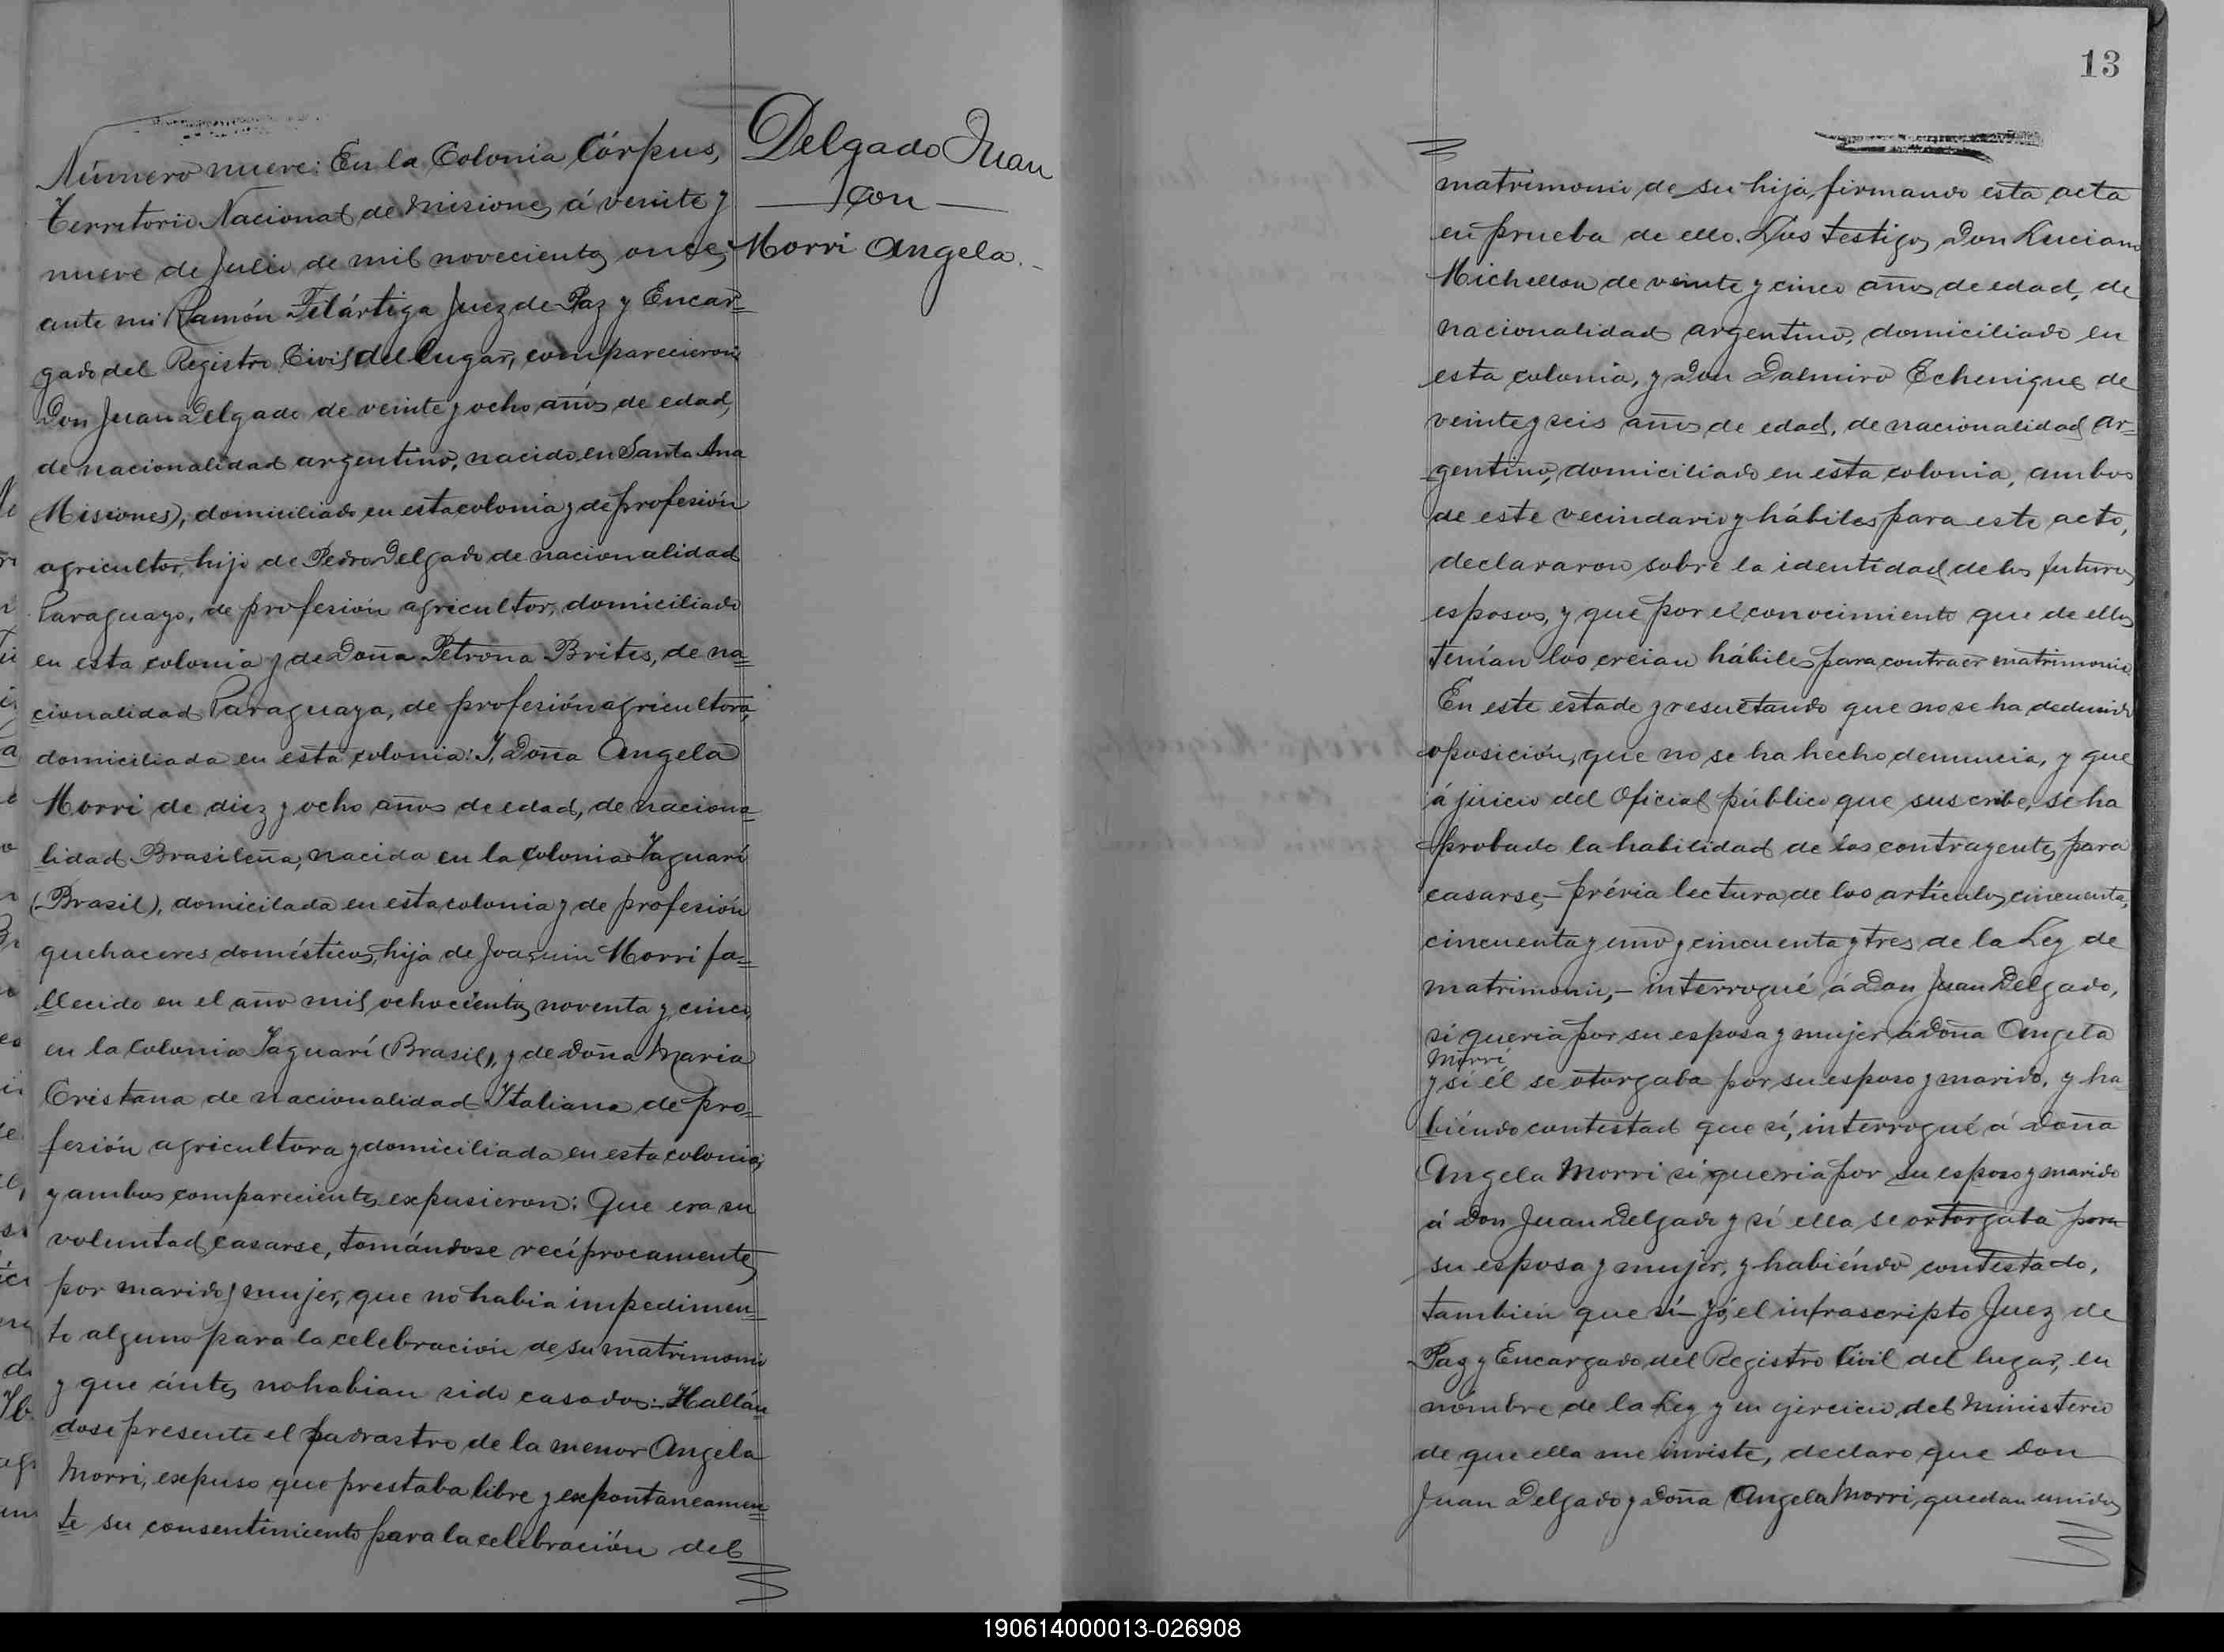 Número nueve: En la Colonia Córpus,
Territorio Nacional de Misiones, á veinte y
nueve de Julio de mil novecientos once,
ante mi Ramón Filártiga Juez de Paz y Encar=
gado del Registro Civil del lugar, comparecieron
Don Juan Delgado de veinte y ocho años de edad,
de nacionalidad argentino, nacido en Santa Ana
(Misiones), domiciliado en esta colonia y de profesión
agricultor, hijo de Pedro Delgado de nacionalidad
Paraguayo, de profesión agricultor, domiciliado
en esta colonia y de Doña Petrona Brites, de na=
cionalidad Paraguaya, de profesión agricultora,
domiciliada en esta colonia: Y, Doña Angela
Morri de diez y ocho años de edad, de naciona=
lidad Brasileña, nacida en la colonia Yaguarí
(Brasil), domicilada en esta colonia y de profesión
quehaceres domésticos, hija de Joaquin Morri fa=
llecido en el año mil ochocientos noventa y cinco,
en la colonia Yaguarí (Brasil), y de Doña Maria
Cristana de nacionalidad Italiana de pro=
fesión agricultora y domiciliada en esta colonia;
y ambos comparecientes expusieron: Que era su
voluntad casarse, tomándose recíprocamente
por marido y mujer, que no habia impedimen=
to alguno para la celebración de su matrimonio
y que ántes no habian sido casados:- Hallán
dose presente el padrastro de la menor Angela
Morri, expuso que prestaba libre y expontaneamen=
te su consentimiento para la celebración del
Delgado Juan
con
Morri Angela.-
13
matrimonio de su hija, firmando esta acta
en prueba de ello. Los testigos Don Luciano
Michellon de veinte y cinco años de edad, de
nacionalidad argentino, domiciliado en
esta colonia, y Don Dalmiro Echenique de
veinte y seis años de edad, de nacionalidad ar=
gentino, domiciliado en esta colonia, ambos
de este vecindario y hábiles para este acto,
declararon sobre la identidad de los futuros
esposos, y que por el conocimiento que de ellos
tenían los creian hábiles para contraer matrimonio.
En este estado y resultando que no se ha deducido
oposición, que no se ha hecho denuncia, y que
á juicio del Oficial público que suscribe, se ha
probado la habilidad de los contrayentes para
casarse,- prévia lectura de los artículos cincuenta,
cincuenta y uno y cincuenta y tres de la Ley de
matrimonio,- interrogué á Don Juan Delgado,
si queria por su esposa y mujer á Doña Angela
Morri
y sí él se otorgaba por su esposo y marido, y ha
biéndo contestad que sí, interrogué á Doña
Angela Morri si queria por su esposo y marido
á Don Juan Delgado y sí ella se ortorgaba por
su esposa y mujer, y habiéndo contestado,
tambien que sí- yó, el infrascripto Juez de
Paz y Encargado del Registro Civil del lugar, en
nómbre de la Ley y en ejercicio del Ministerio
de que ella me inviste, declaro que Don
Juan Delgado y Doña Angela Morri, quedan unidos
190614000013-026908